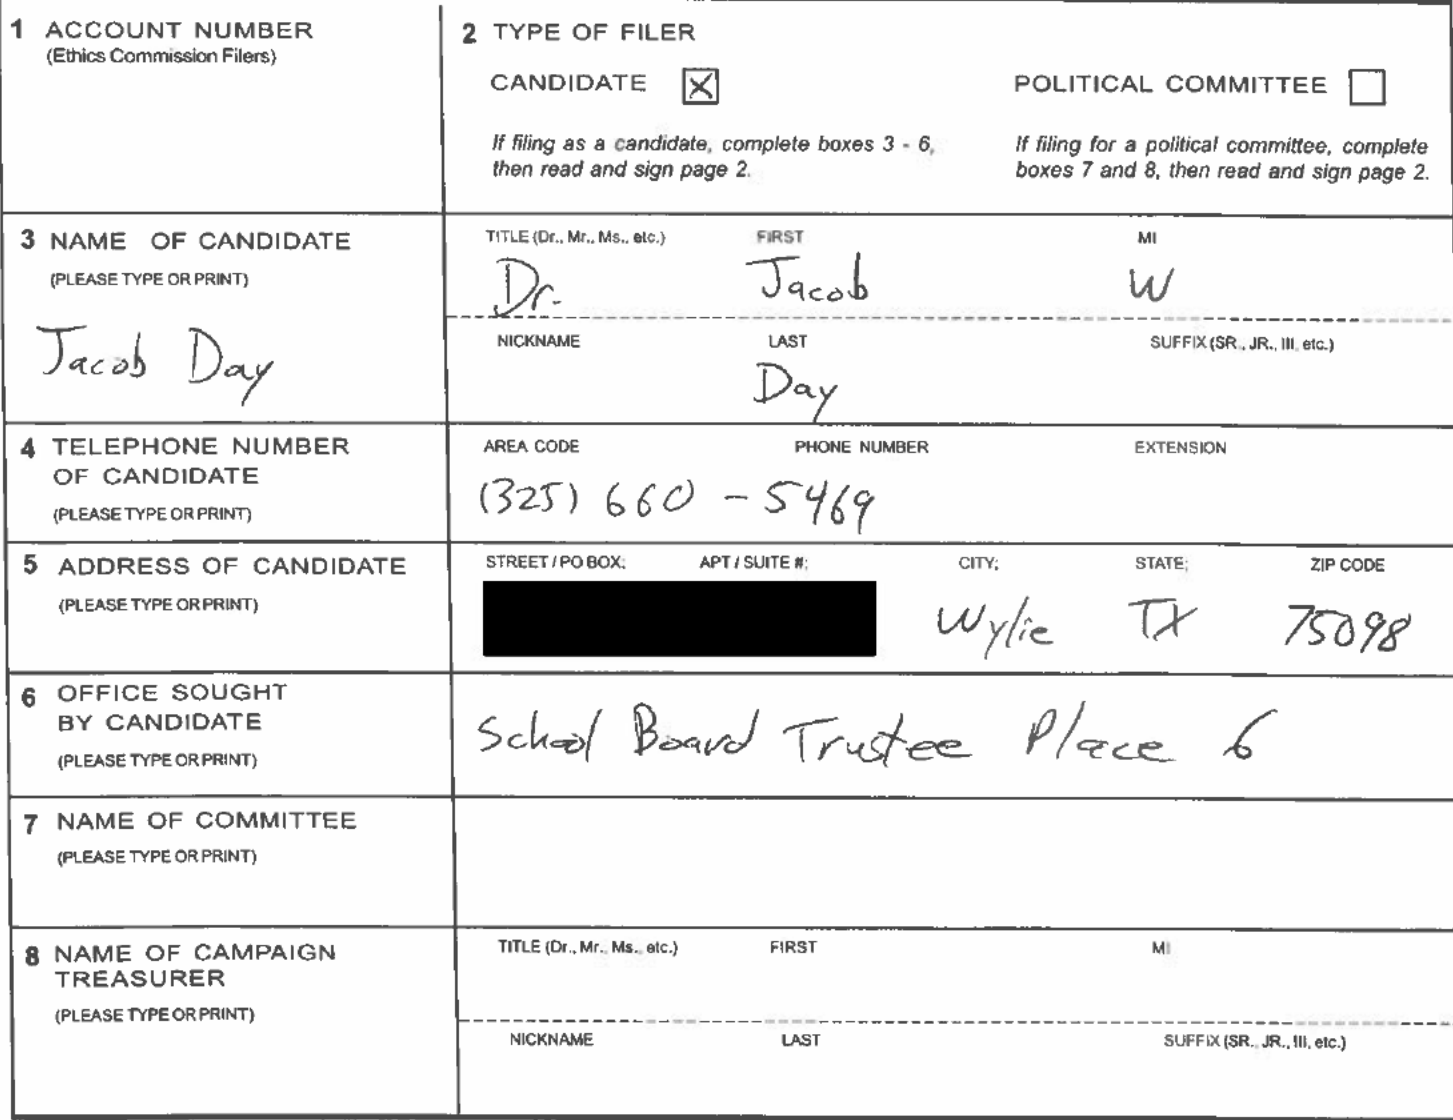 1 ACCOUNT NUMBER
(Ethics Commission Filers)
2 TYPE OF FILER
CANDIDATE
POLITICAL COMMITTEE
If filing as a candidate, complete boxes 3 - 6,
then read and sign page 2.
If filing for a political committee, complete
boxes 7 and 8, then read and sign page 2.
3 NAME OF CANDIDATE
(PLEASE TYPE OR PRINT)
Jacob Day
TITLE (Dr., Mr., Ms., etc.) FIRST MI
Dr. Jacob W
NICKNAME LAST SUFFIX (SR., JR., III, etc.)
Day
4 TELEPHONE NUMBER
OF CANDIDATE
(PLEASE TYPE OR PRINT)
AREA CODE PHONE NUMBER EXTENSION
(325) 660 - 5469
5 ADDRESS OF CANDIDATE
(PLEASE TYPE OR PRINT)
STREET / PO BOX; APT / SUITE #; CITY; STATE; ZIP CODE
Wylie TX 75098
6 OFFICE SOUGHT
BY CANDIDATE
(PLEASE TYPE OR PRINT)
School Board Trustee Place 6
7 NAME OF COMMITTEE
(PLEASE TYPE OR PRINT)
8 NAME OF CAMPAIGN
TREASURER
(PLEASE TYPE OR PRINT)
TITLE (Dr., Mr., Ms., etc.) FIRST MI
NICKNAME LAST SUFFIX (SR., JR., III, etc.)